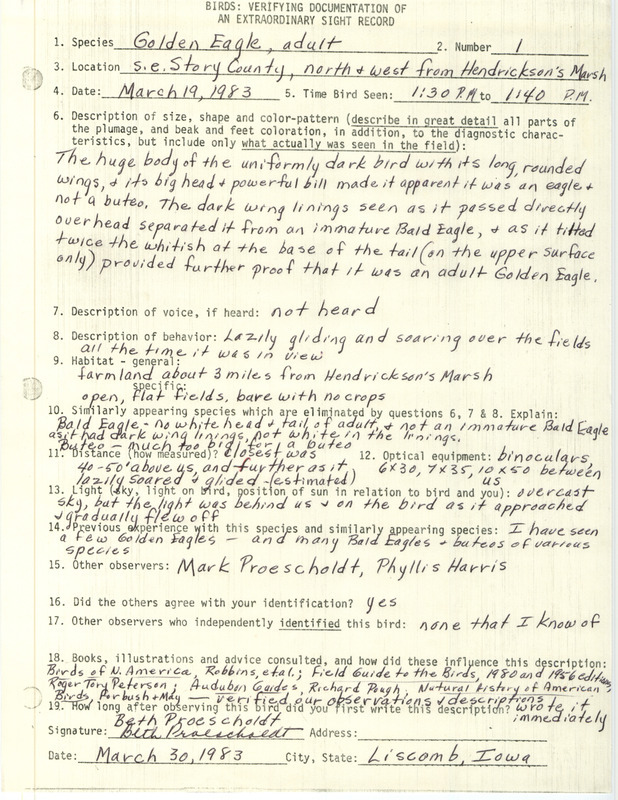 BIRDS: VERIFYING DOCUMENTATION OF
AN EXTRAORDINARY SIGHT RECORD
1. Species Golden Eagle, adult 2. Number 1
3. Location s.e. Story County, north & west from Hendrickson's Marsh
4. Date: March 19, 1983 5. Time Bird Seen: 1:30 P.M. to 1:40 P.M.
6. Description of size, shape and color-pattern (describe in great detail all parts of
the plumage, and beak and feet coloration, in addition, to the diagnostic charac-
teristics, but include only what actually was seen in the field):
The huge body of the uniformly dark bird with its long, rounded
wings, & its big head & powerful bill made it apparent it was an eagle &
not a buteo. The dark wing linings seen as it passed directly
overhead separated it from an immature Bald Eagle, & as it tilted
twice the whitish at the base of the tail (on the upper surface
only) provided further proof that it was an adult Golden Eagle.
7. Description of voice, if heard: not heard
8. Description of behavior: Lazily gliding and soaring over the fields
all the time it was in view
9. Habitat - general:
farmland about 3 miles from Hendrickson's Marsh
specific:
open, flat fields, bare with no crops
10. Similarly appearing species which are eliminated by questions 6, 7 & 8. Explain:
Bald Eagle - no white head & tail of adult, & not an immature Bald Eagle
as it had dark wing linings, not white in the linings.
Buteo - much too big for a buteo
11. Distance (how measured)? closest was 12. Optical equipment: binoculars,
40-50' above us, and further as it 6x30, 7x35, 10x50 between
lazily soared & glided (estimated) us
13. Light (sky, light on bird, position of sun in relation to bird and you): overcast
sky, but the light was behind us & on the bird as it approached
& gradually flew off
14. Previous experience with this species and similarly appearing species: I have seen
a few Golden Eagles - and many Bald Eagles & buteos of various
species
15. Other observers: Mark Proescholdt, Phyllis Harris
16. Did the others agree with your identification? yes
17. Other observers who independently identified this bird: none that I know of
18. Books, illustrations and advice consulted, and how did these influence this description:
Birds of N. America, Robbins, et al.; Field Guide to the Birds, 1980 and 1956 editions,
Roger Tory Peterson; Audubon Guides, Richard Pough, Natural History of American
Birds, Forbush & May - verified our observations & descriptions
19. How long after observing this bird did you first write this description? wrote it
immediately
Beth Proescholdt
Signature: Beth Proescholdt Address:
Date: March 30, 1983 City, State: Liscomb, Iowa